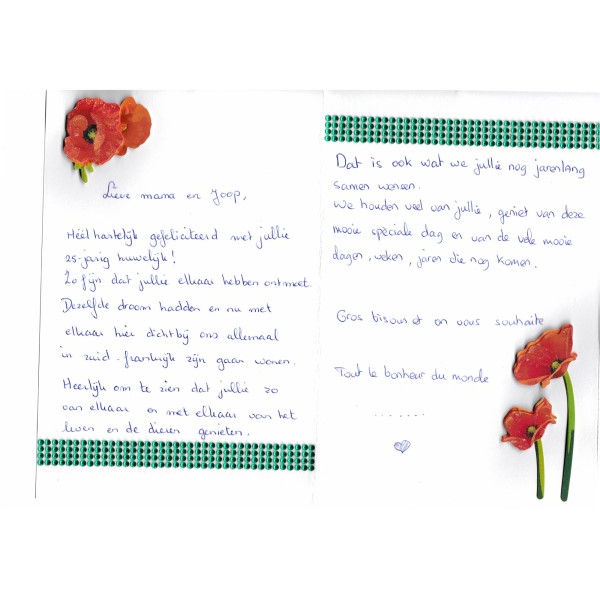 Lieve mama en Joop,
Héél hartelijk gefeliciteerd met jullie
25-jarig huwelijk!
Zo fijn dat jullie elkaar hebben ontmoet.
Dezelfde droom hadden en nu met
elkaar hier dichtbij ons allemaal
in zuid-frankrijk zijn gaan wonen.
Heerlijk om te zien dat jullie zo
van elkaar en met elkaar van het
leven en de dieren genieten.
Dat is ook wat we jullie nog jarenlang
samen wensen.
We houden veel van jullie, geniet van deze
mooie speciale dag en van de vele mooie
dagen, weken, jaren die nog komen.
Gros bisous et on vous souhaite
Tout le bonheur du monde
........